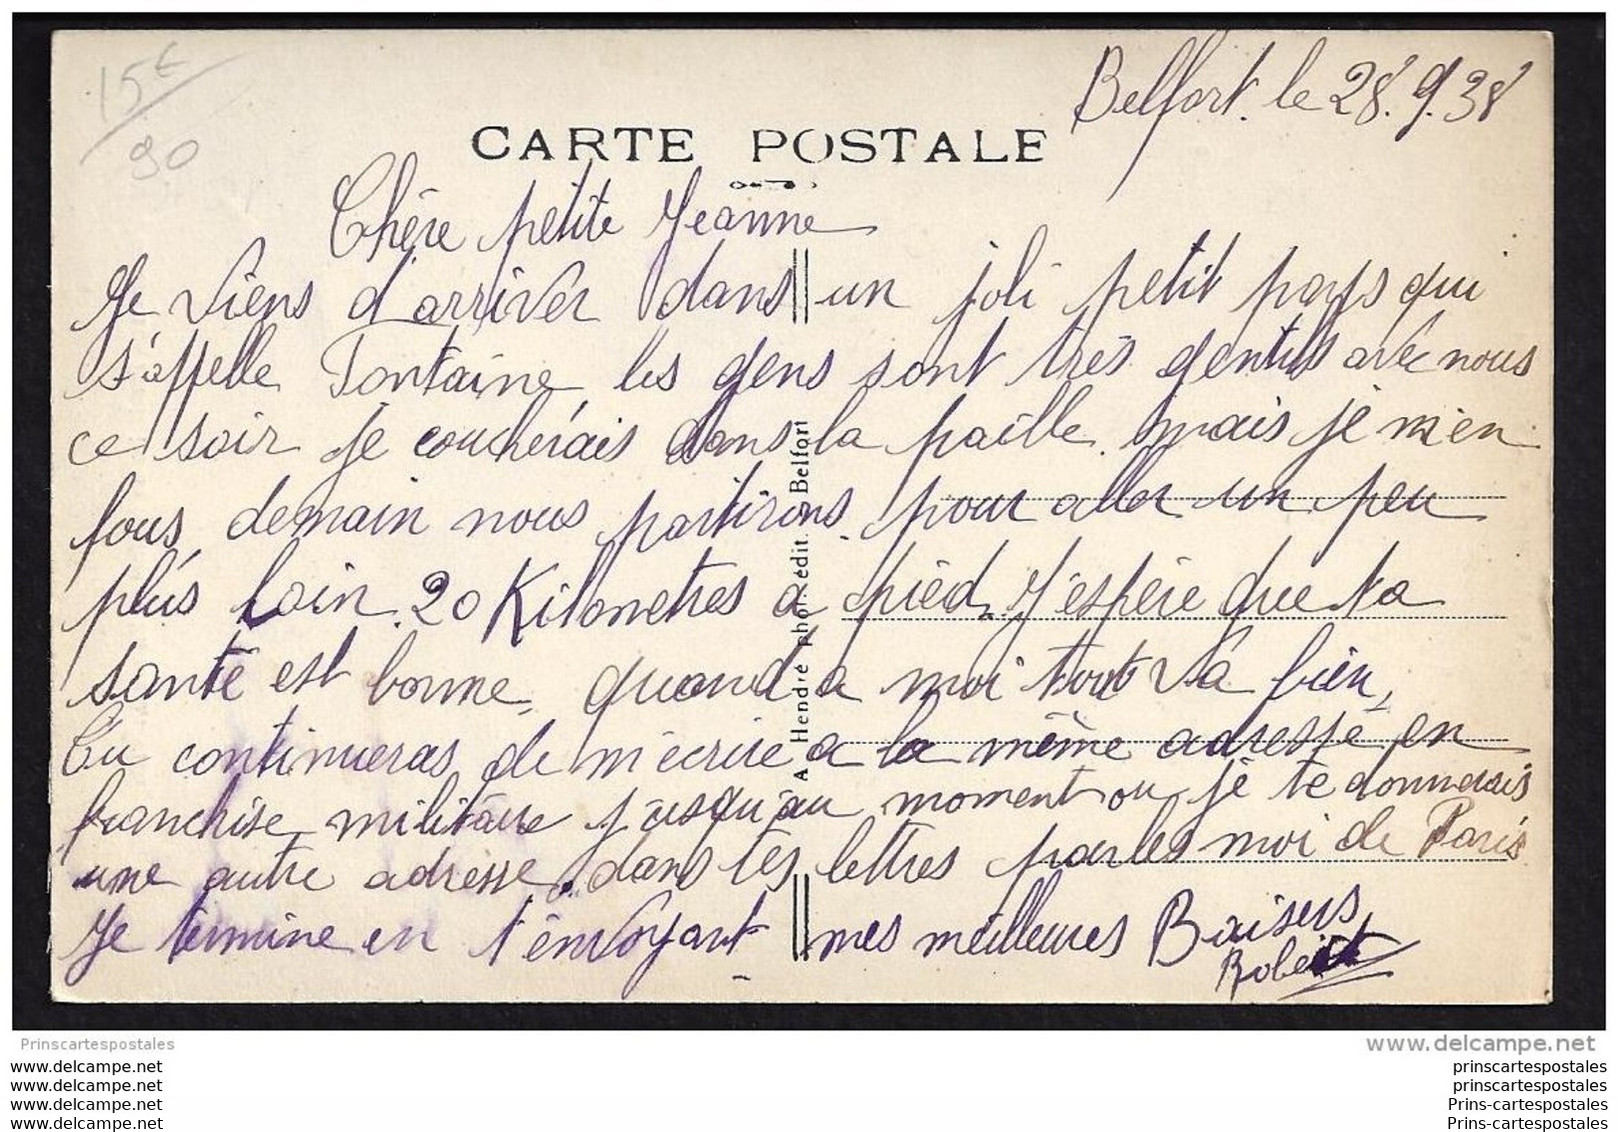 15€
90
Belfort. le 28.9.38
CARTE POSTALE
Chère petite Jeanne
Je viens d'arriver dans un joli petit pays qui
s'appelle Fontaine, les gens sont très gentils avec nous
ce soir je coucherais dans la paille. mais je m'en
fous, demain nous partirons pour aller un peu
plus loin. 20 Kilometres a pied, J'espère que ta
santé est bonne, quand a moi tout va bien,
Tu continueras de m'écrire a la même adresse en
franchise militaire jusqu'au moment ou je te donnerais
une autre adresse. dans tes lettres parles moi de Paris.
Je termine en t'envoyant mes meilleures Baisers
Robert
A Hendré phot. édit. Belfort
Prinscartespostales
www.delcampe.net
www.delcampe.net
www.delcampe.net
www.delcampe.net
www.delcampe.net
prinscartespostales
prinscartespostales
Prins-cartespostales
Prins-cartespostales